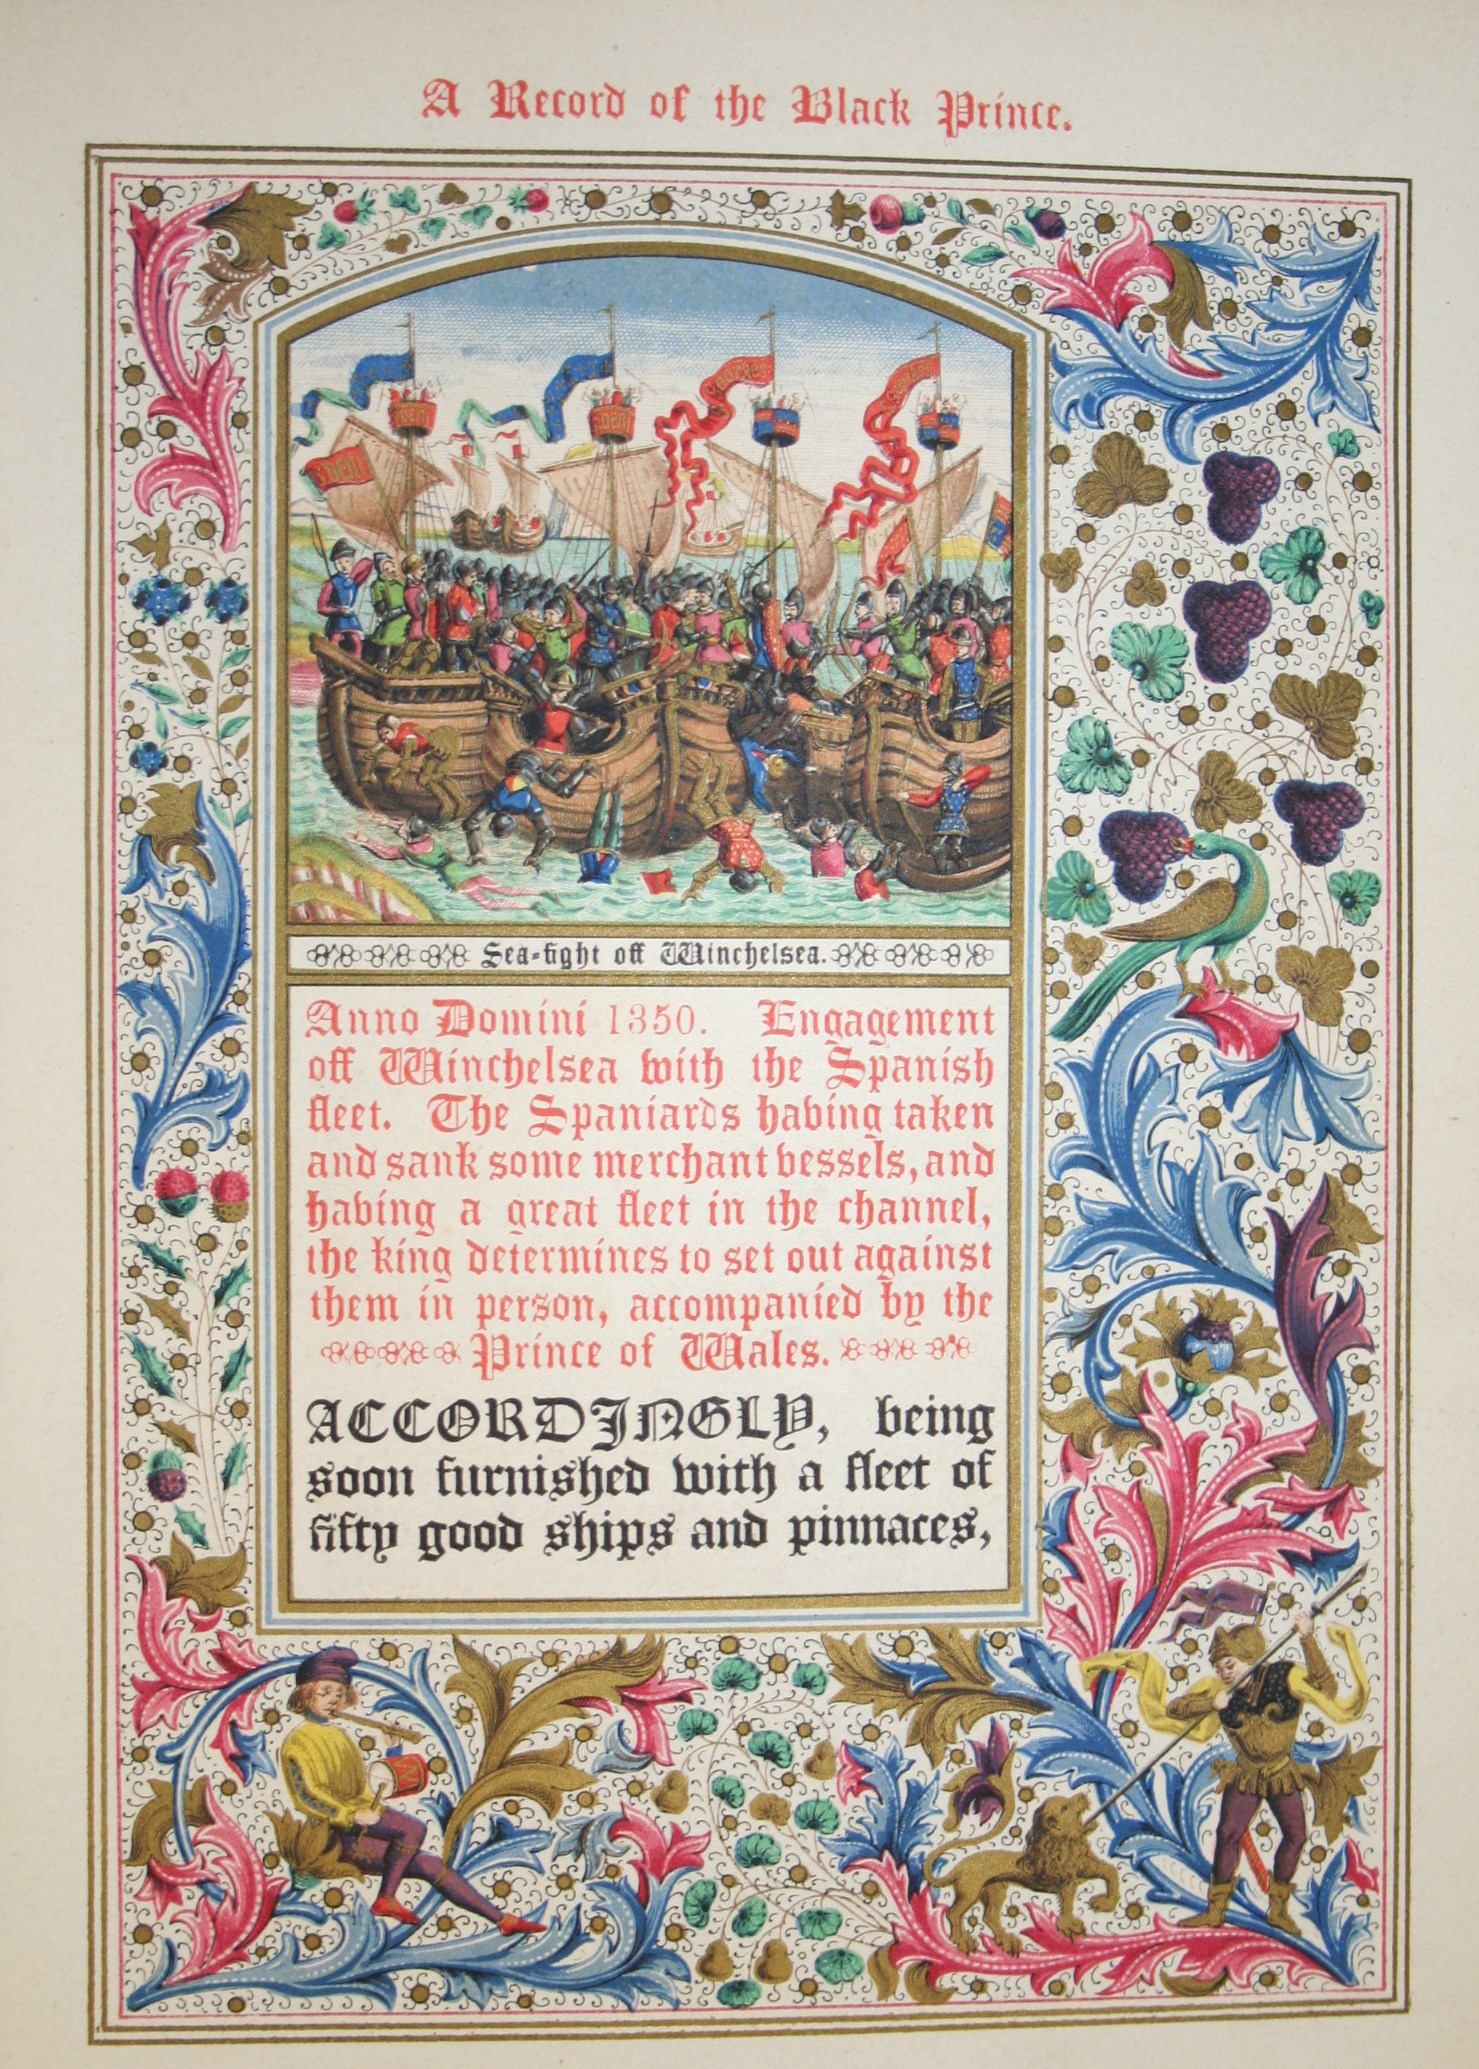 A Record of the Black Prince.
Sea-fight off Winchelsea.
Anno Domini 1350. Engagement
off Winchelsea with the Spanish
fleet. The Spaniards having taken
and sank some merchant vessels, and
having a great fleet in the channel,
the king determines to set out against
them in person, accompanied by the
Prince of Wales.
ACCORDINGLY, being
soon furnished with a fleet of
fifty good ships and pinnaces,